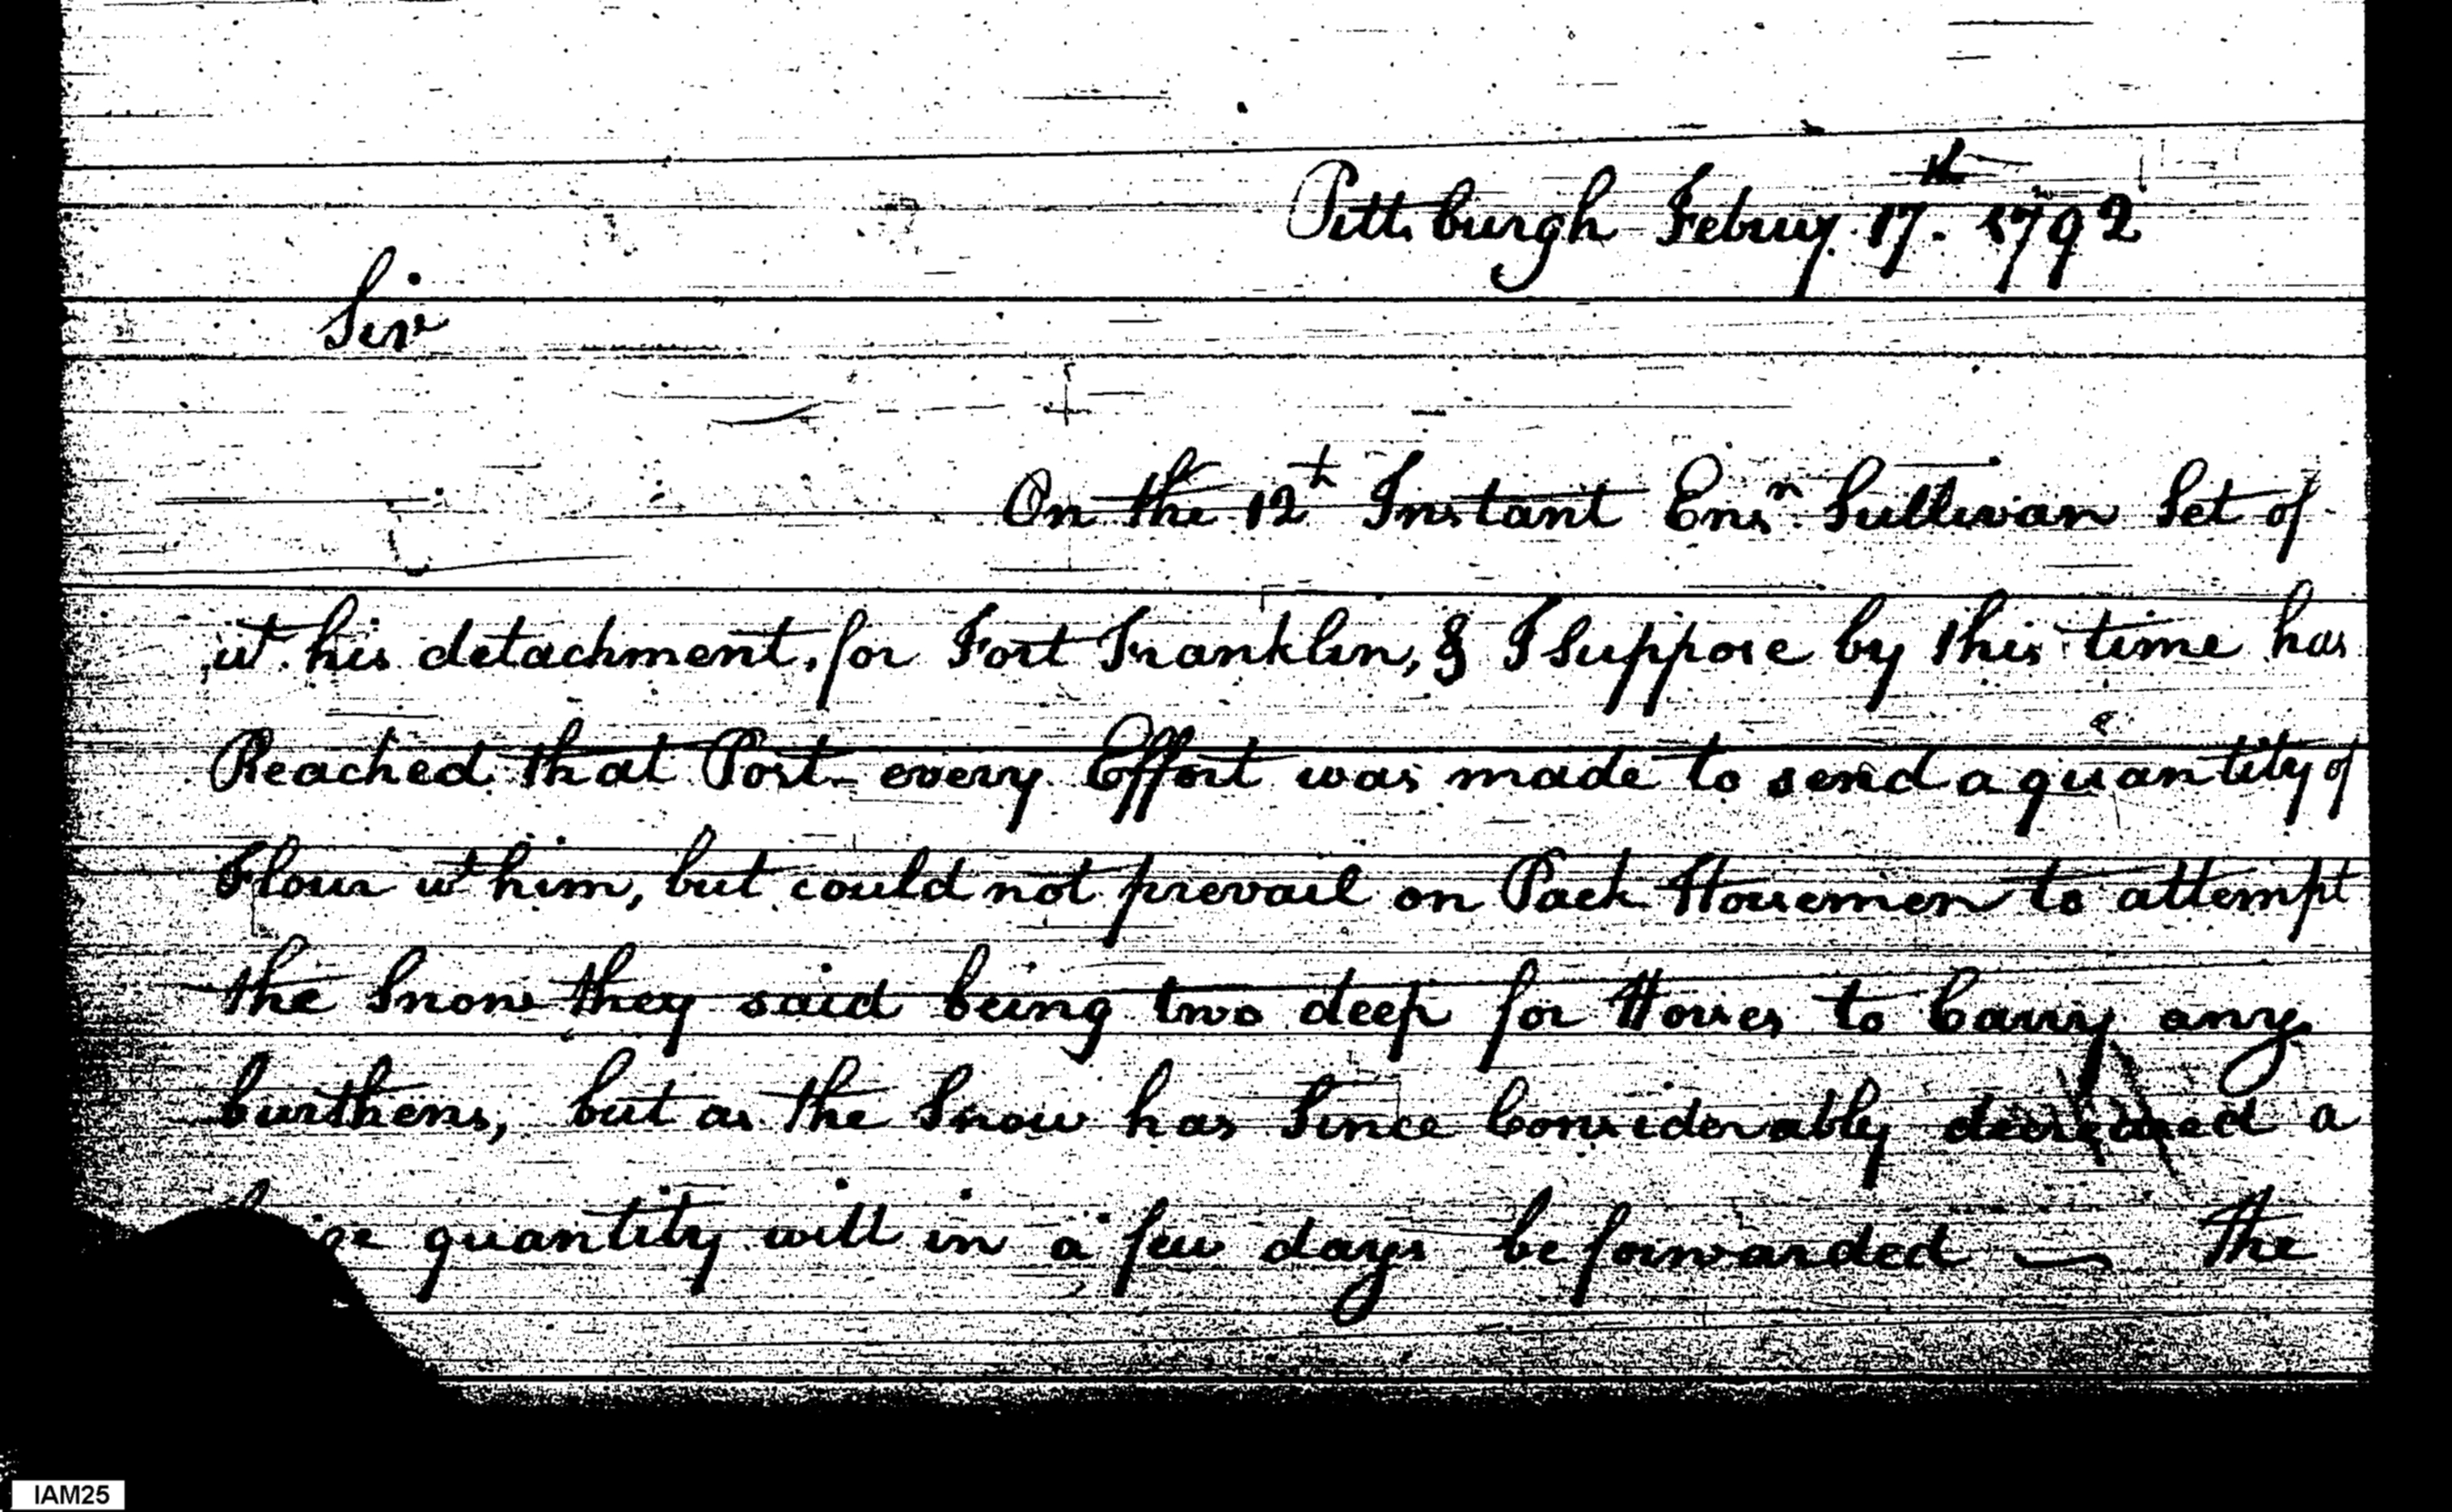 Pittsburgh Februy. 17th. 1792
Sir
On the 12th Instant Ensn. Sullivan Set of
wt. his detachment, for Fort Franklin, & I Suppose by this time has
Reached that Post – every Effort was made to send a quantity of
Flour wt him, but could not prevail on Pack Horsemen to attempt
the Snow they said being two deep for Horses to Carry any
burthens, but as the Snow has Since Considerably decreased a
quantity will in a few days be forwarded — The
IAM25